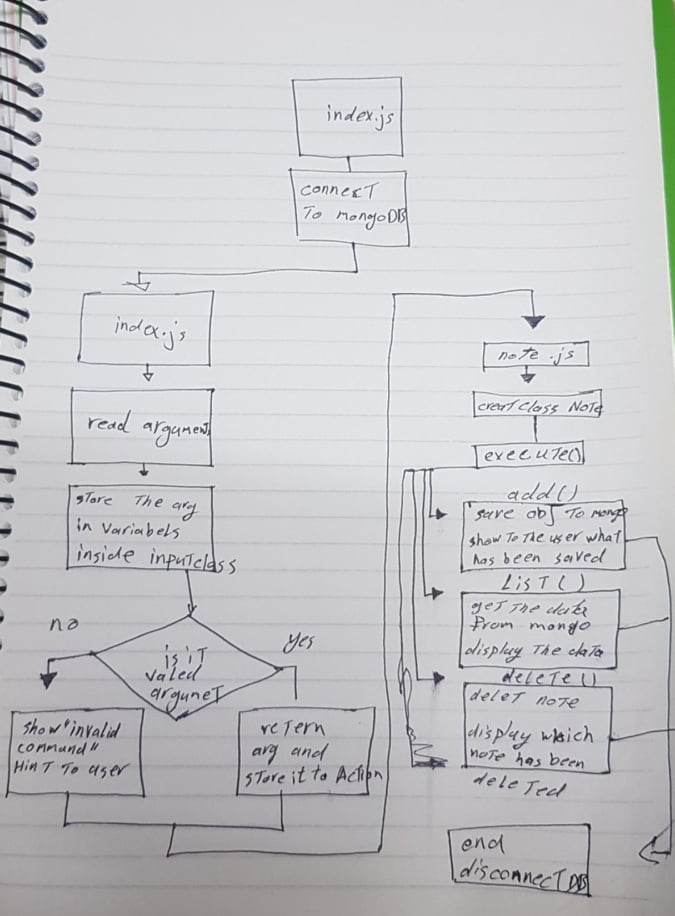 index.js
connecT
To mongoDB
index.js
read argument
sTore The arg
in variabels
inside inputclass
no
yes
is iT
valed
argumeT
show "invalid
command"
HinT To user
reTern
arg and
sTore it to Action
note .js
creaT class NoTe
execuTe()
add()
save obj To mongo
show To The user what
has been saved
LisT()
geT The data
from mongo
display The data
deleTe()
deleT noTe
display which
noTe has been
deleTed
end
disconnecT DB